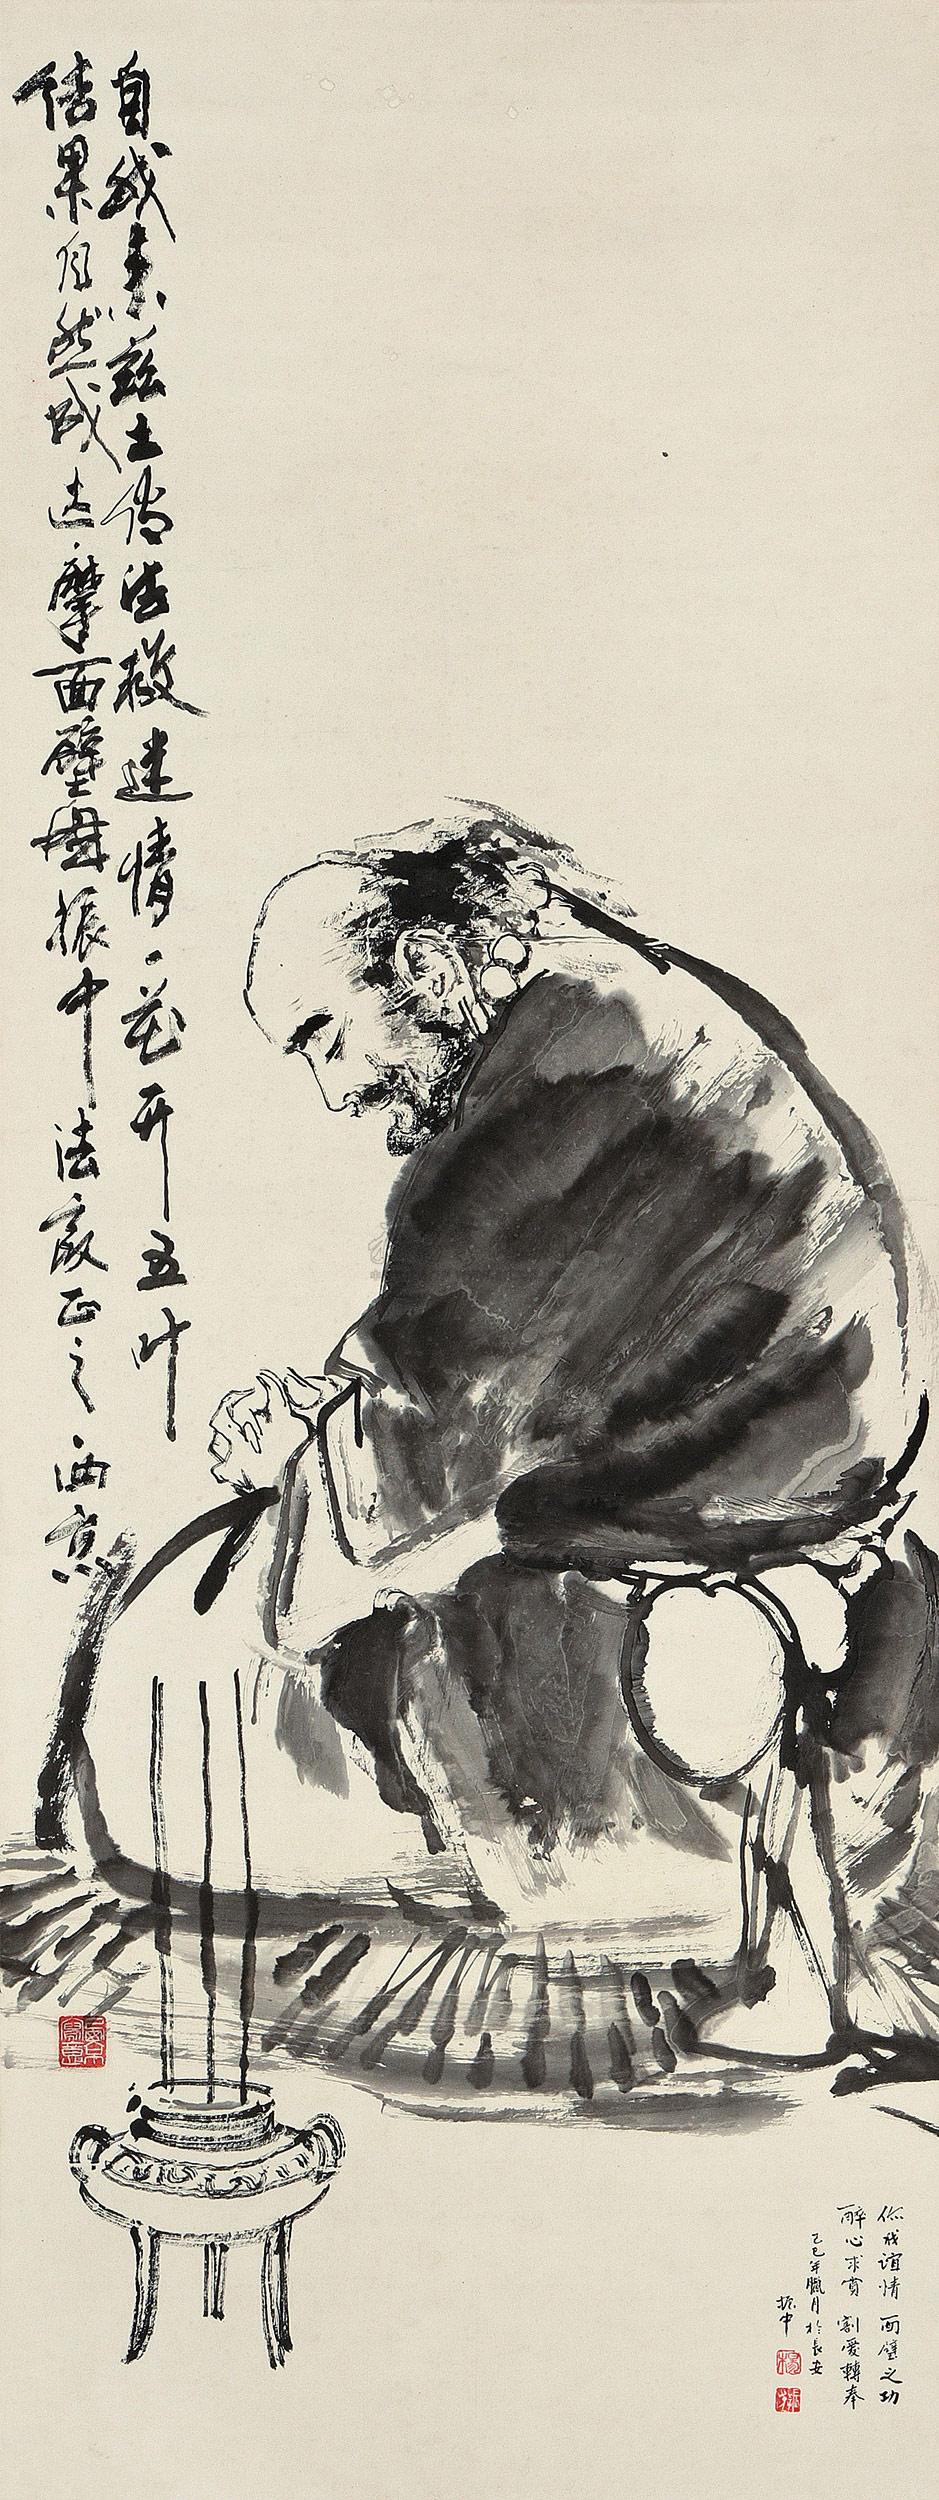 自我来兹土传法救迷情一花开五叶
结果自然成达摩面壁图振中法家正之西京
你我誼情面壁之功
醉心求賞割愛轉奉
己巳年臘月於長安
振中